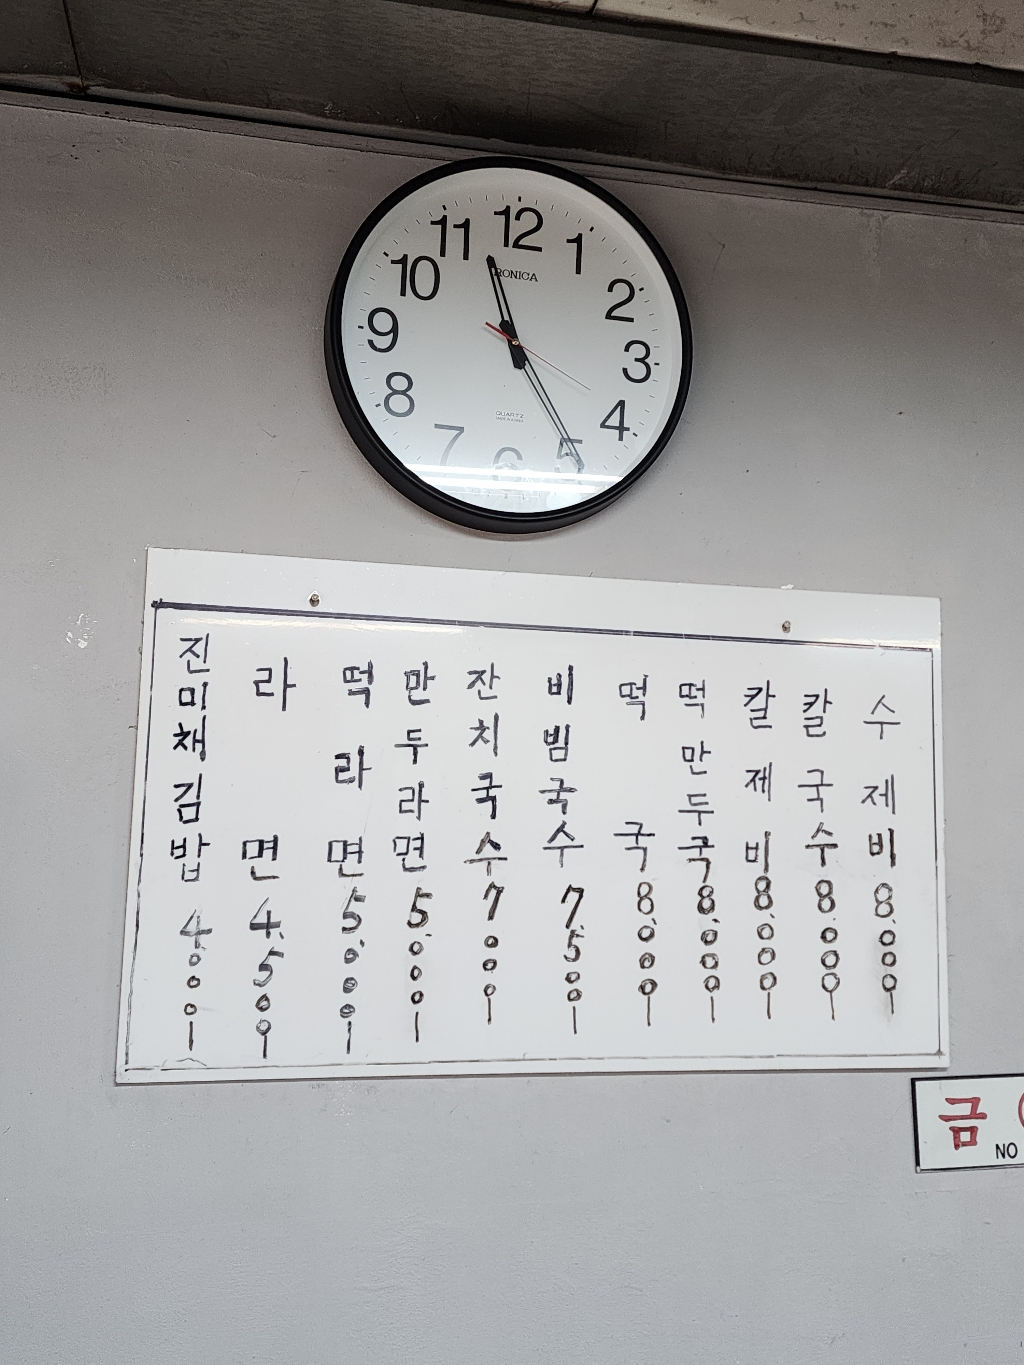 12
11
1
10
2
RONICA
9
3
8
4
QUARTZ
7
5
6
진미채김밥 4.000
라면 4.500
떡라면 5.000
만두라면 5.000
잔치국수 7000
비빔국수 7.500
떡국 8.000
떡만두국 8.000
칼제비 8.000
칼국수 8.000
수제비 8.000
금
NO